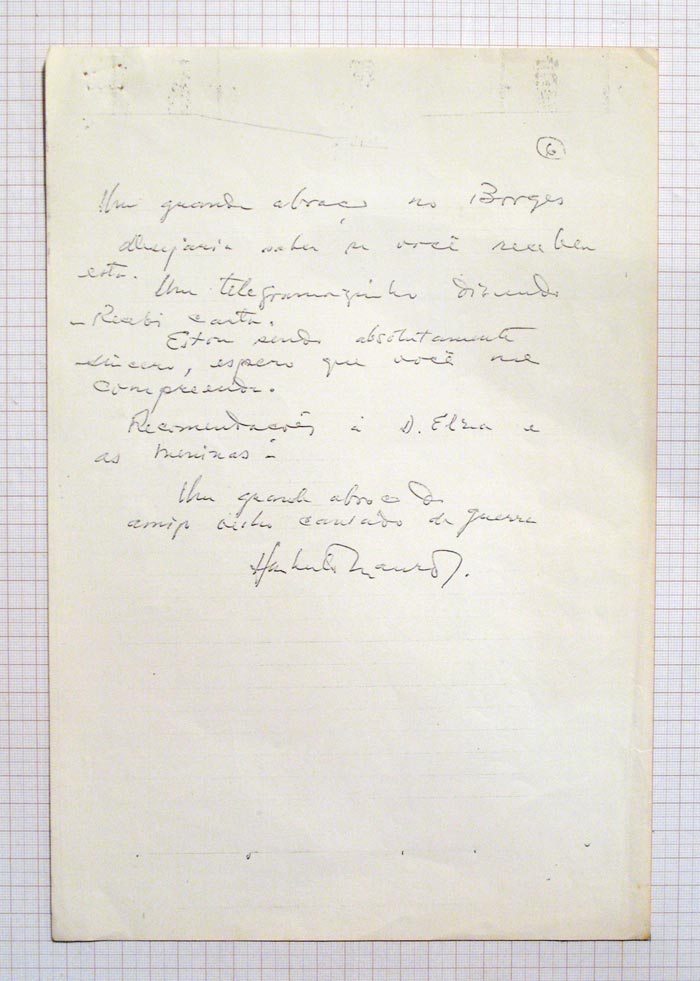 6
Um grande abraço no Borges
desejaria saber se você recebeu
esta. Um telegramazinho dizendo
- Recebi carta.
Estou sendo absolutamente
sincero, espero que você me
compreenda.
Recomendações à D. Elza e
as meninas -
Um grande abraço do
amigo velho cansado de guerra